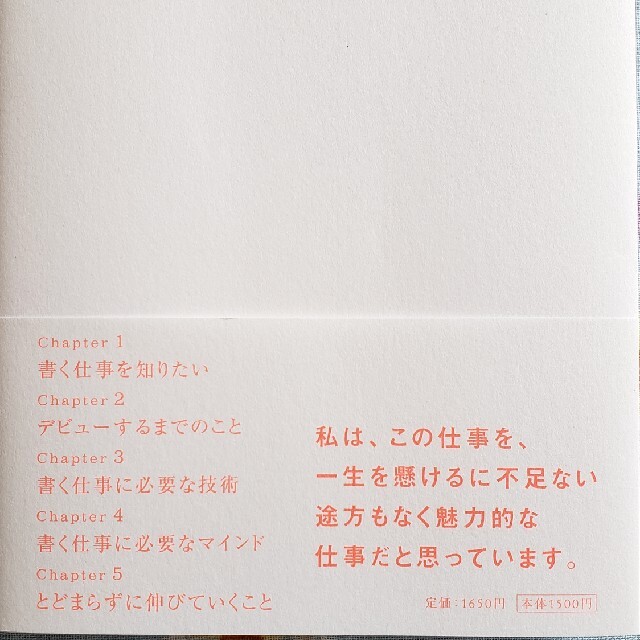 Chapter 1
書く仕事を知りたい
Chapter 2
デビューするまでのこと
Chapter 3
書く仕事に必要な技術
Chapter 4
書く仕事に必要なマインド
Chapter 5
とどまらずに伸びていくこと
私は、この仕事を、
一生を懸けるに不足ない
途方もなく魅力的な
仕事だと思っています。
定価：1650円 本体1500円